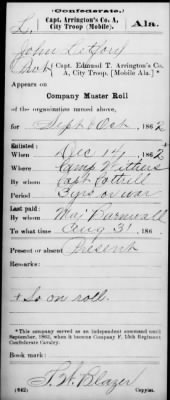 (Confederate.)
L. Capt. Arrington's Co. A, City Troop (Mobile) Ala.
John
Pvt., Capt. Edmund T. Arrington's Co. A, City Troop, (Mobile Ala.)*
Appears on
Company Muster Roll
of the organization named above,
for Sept & Oct, 1862
Enlisted:
When Dec 14, 1862
Where Camp Withers
By whom Capt Cottrill
Period 3 yrs or war
Last paid:
By whom Maj Barnwall
To what time Aug 31, 186
Present or absent Present
Remarks:
+ So on roll.
*This company served as an independent command until
September, 1863, when it became Company F, 15th Regiment
Confederate Cavalry.
Book mark:
Blazer
(642) Copyist.